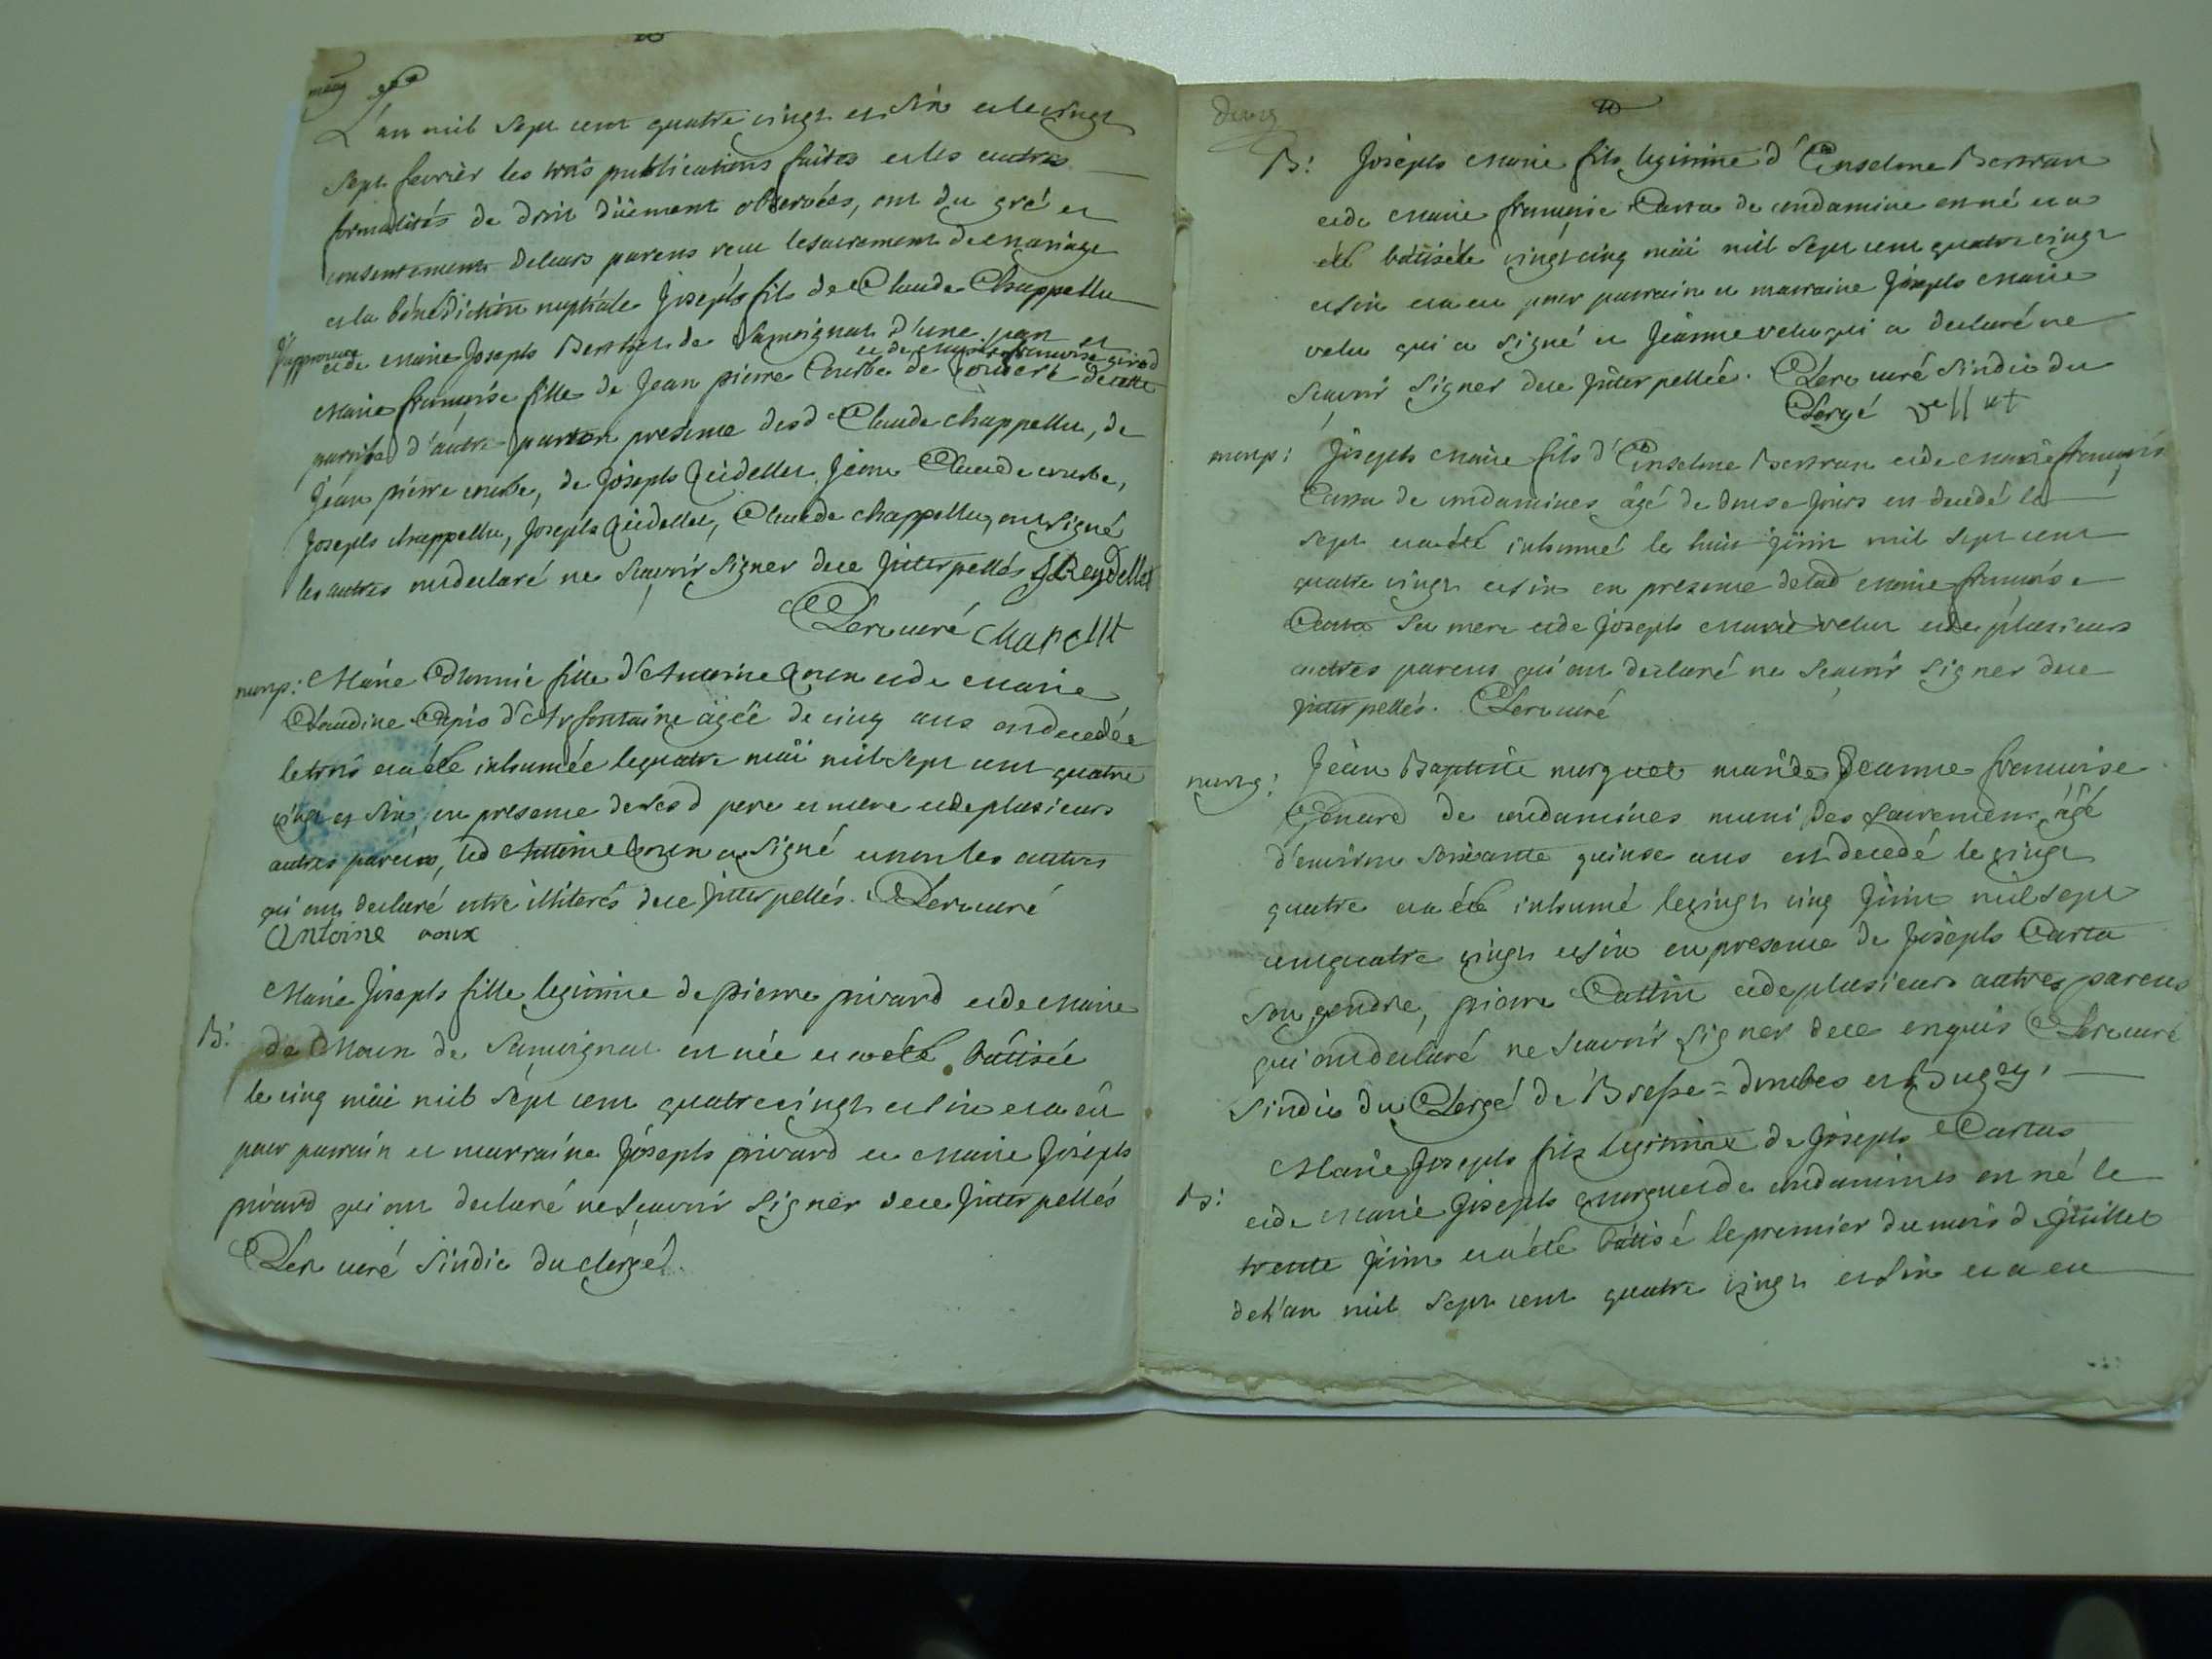 mariag
L'an mil sept cent quatre vingt et six et le vingt
sept fevrier les trois publications faites et les autres
formalités de droit düement observées, ont du gré et
consentement de leurs parens recu le sacrement de mariage
et la bénédiction nuptiale Joseph fils de Claude Chappellu
J'approuve et de Marie Joseph Berthet de Samoignat d'une part et
et de marie francoise girod
Marie francoise fille de Jean pierre Courbe de de cette
parroisse d'autre part en presence desd Claude chappellu, de
Jean pierre courbe, de Joseph Reidellet, Jean Claude courbe,
Joseph chappellu, Joseph Reidellet, Claude chappellu, ont signé
les autres ont declaré ne scavoir signer de ce interpellés J Reydellet
Clerc curé chapellt
Marie fille d'Antoine roux et de Marie
Claudine d'Arfontaine agée de cinq ans est decedée
le trois et a été inhumée le quatre mäi mil sept cent quatre
vingt et six en presence de sesd pere et mere et de plusieurs
autres parens, led Antoine roux a signé et non les autres
qui ont declaré estre illiterés de ce interpellés. Clerc curé
Antoine roux
Marie Joseph fille legitime de pierre pivard et de Marie
B: de Morin de Samoignat est née et a été batisée
le cinq mäi mil sept cent quatre vingt et six et a eü
pour parrain et marraine Joseph pivard et Marie Joseph
pivard qui ont declaré ne scavoir signer de ce interpellés
Clerc curé sindic du clergé.
B: Joseph Marie fils legitime d'Anselme Bertran
et de Marie francoise Carra de condamine est né et a
été batisé le vingt cinq mäi mil sept cent quatre vingt
et six et a eu pour parrain et marraine Joseph Marie
velu qui a signé et Jeanne velu qui a declaré ne
scavoir signer de ce interpellée. Clerc curé sindic du
Clergé vellut
Joseph Marie fils d'Anselme Bertran et de Marie francoise
Carra de condamines agé de douse jours est decedé le
sept et a été inhumé le huit juin mil sept cent
quatre vingt et six en presence de lad Marie francoise
Carra sa mere et de Joseph Marie velu et de plusieurs
autres parens qui ont declaré ne scavoir signer de ce
interpellés. Clerc curé
Jean Baptiste murguet mari de Jeanne francoise
de condamines muni des sacremens agé
d'environ soixante quinse ans est decedé le vingt
quatre et a été inhumé le vingt cinq juin mil sept
cent quatre vingt et six en presence de Joseph Carra
son gendre, pierre Cattin et de plusieurs autres parens
qui ont declaré ne scavoir signer de ce enquis Clerc curé
Sindic du Clergé de Bresse = dombes et Bugey,
Marie Joseph fils legitime de Joseph Cartas
B: et de Marie Joseph murguet de condamines est né le
trente juin et a été batisé le premier du mois de juillet
de l'an mil sept cent quatre vingt et six et a eu